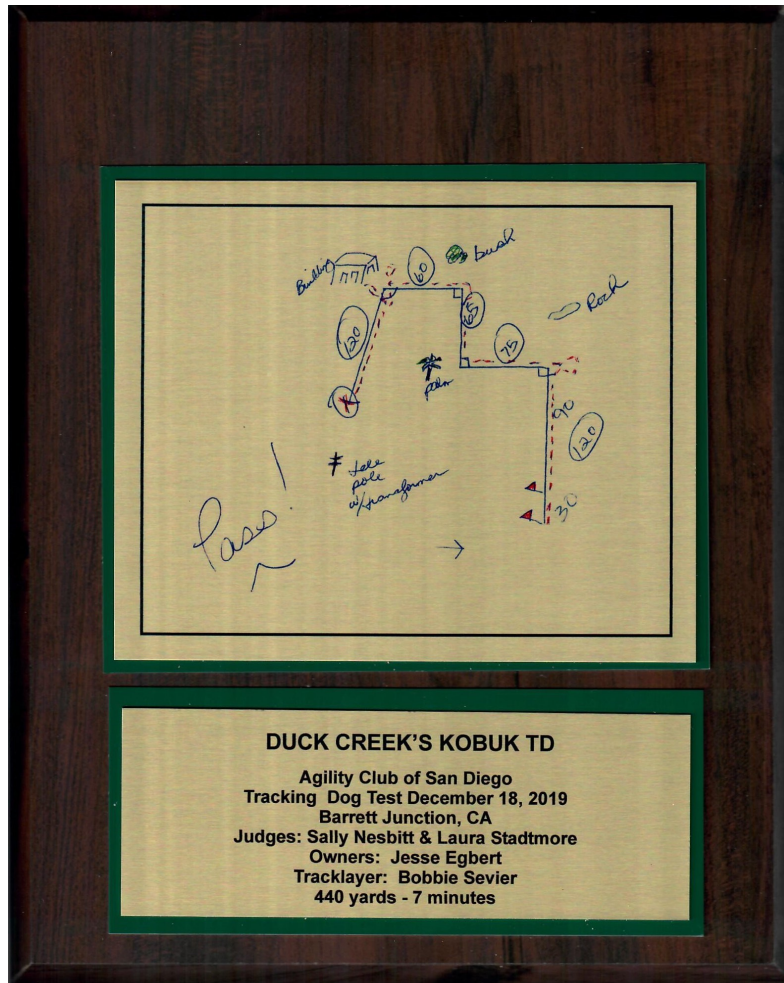 Building
60
bush
65
Rock
120
75
palm
90
120
tele
pole
w/transformer
30
Pass!
DUCK CREEK'S KOBUK TD
Agility Club of San Diego
Tracking Dog Test December 18, 2019
Barrett Junction, CA
Judges: Sally Nesbitt & Laura Stadtmore
Owners: Jesse Egbert
Tracklayer: Bobbie Sevier
440 yards - 7 minutes